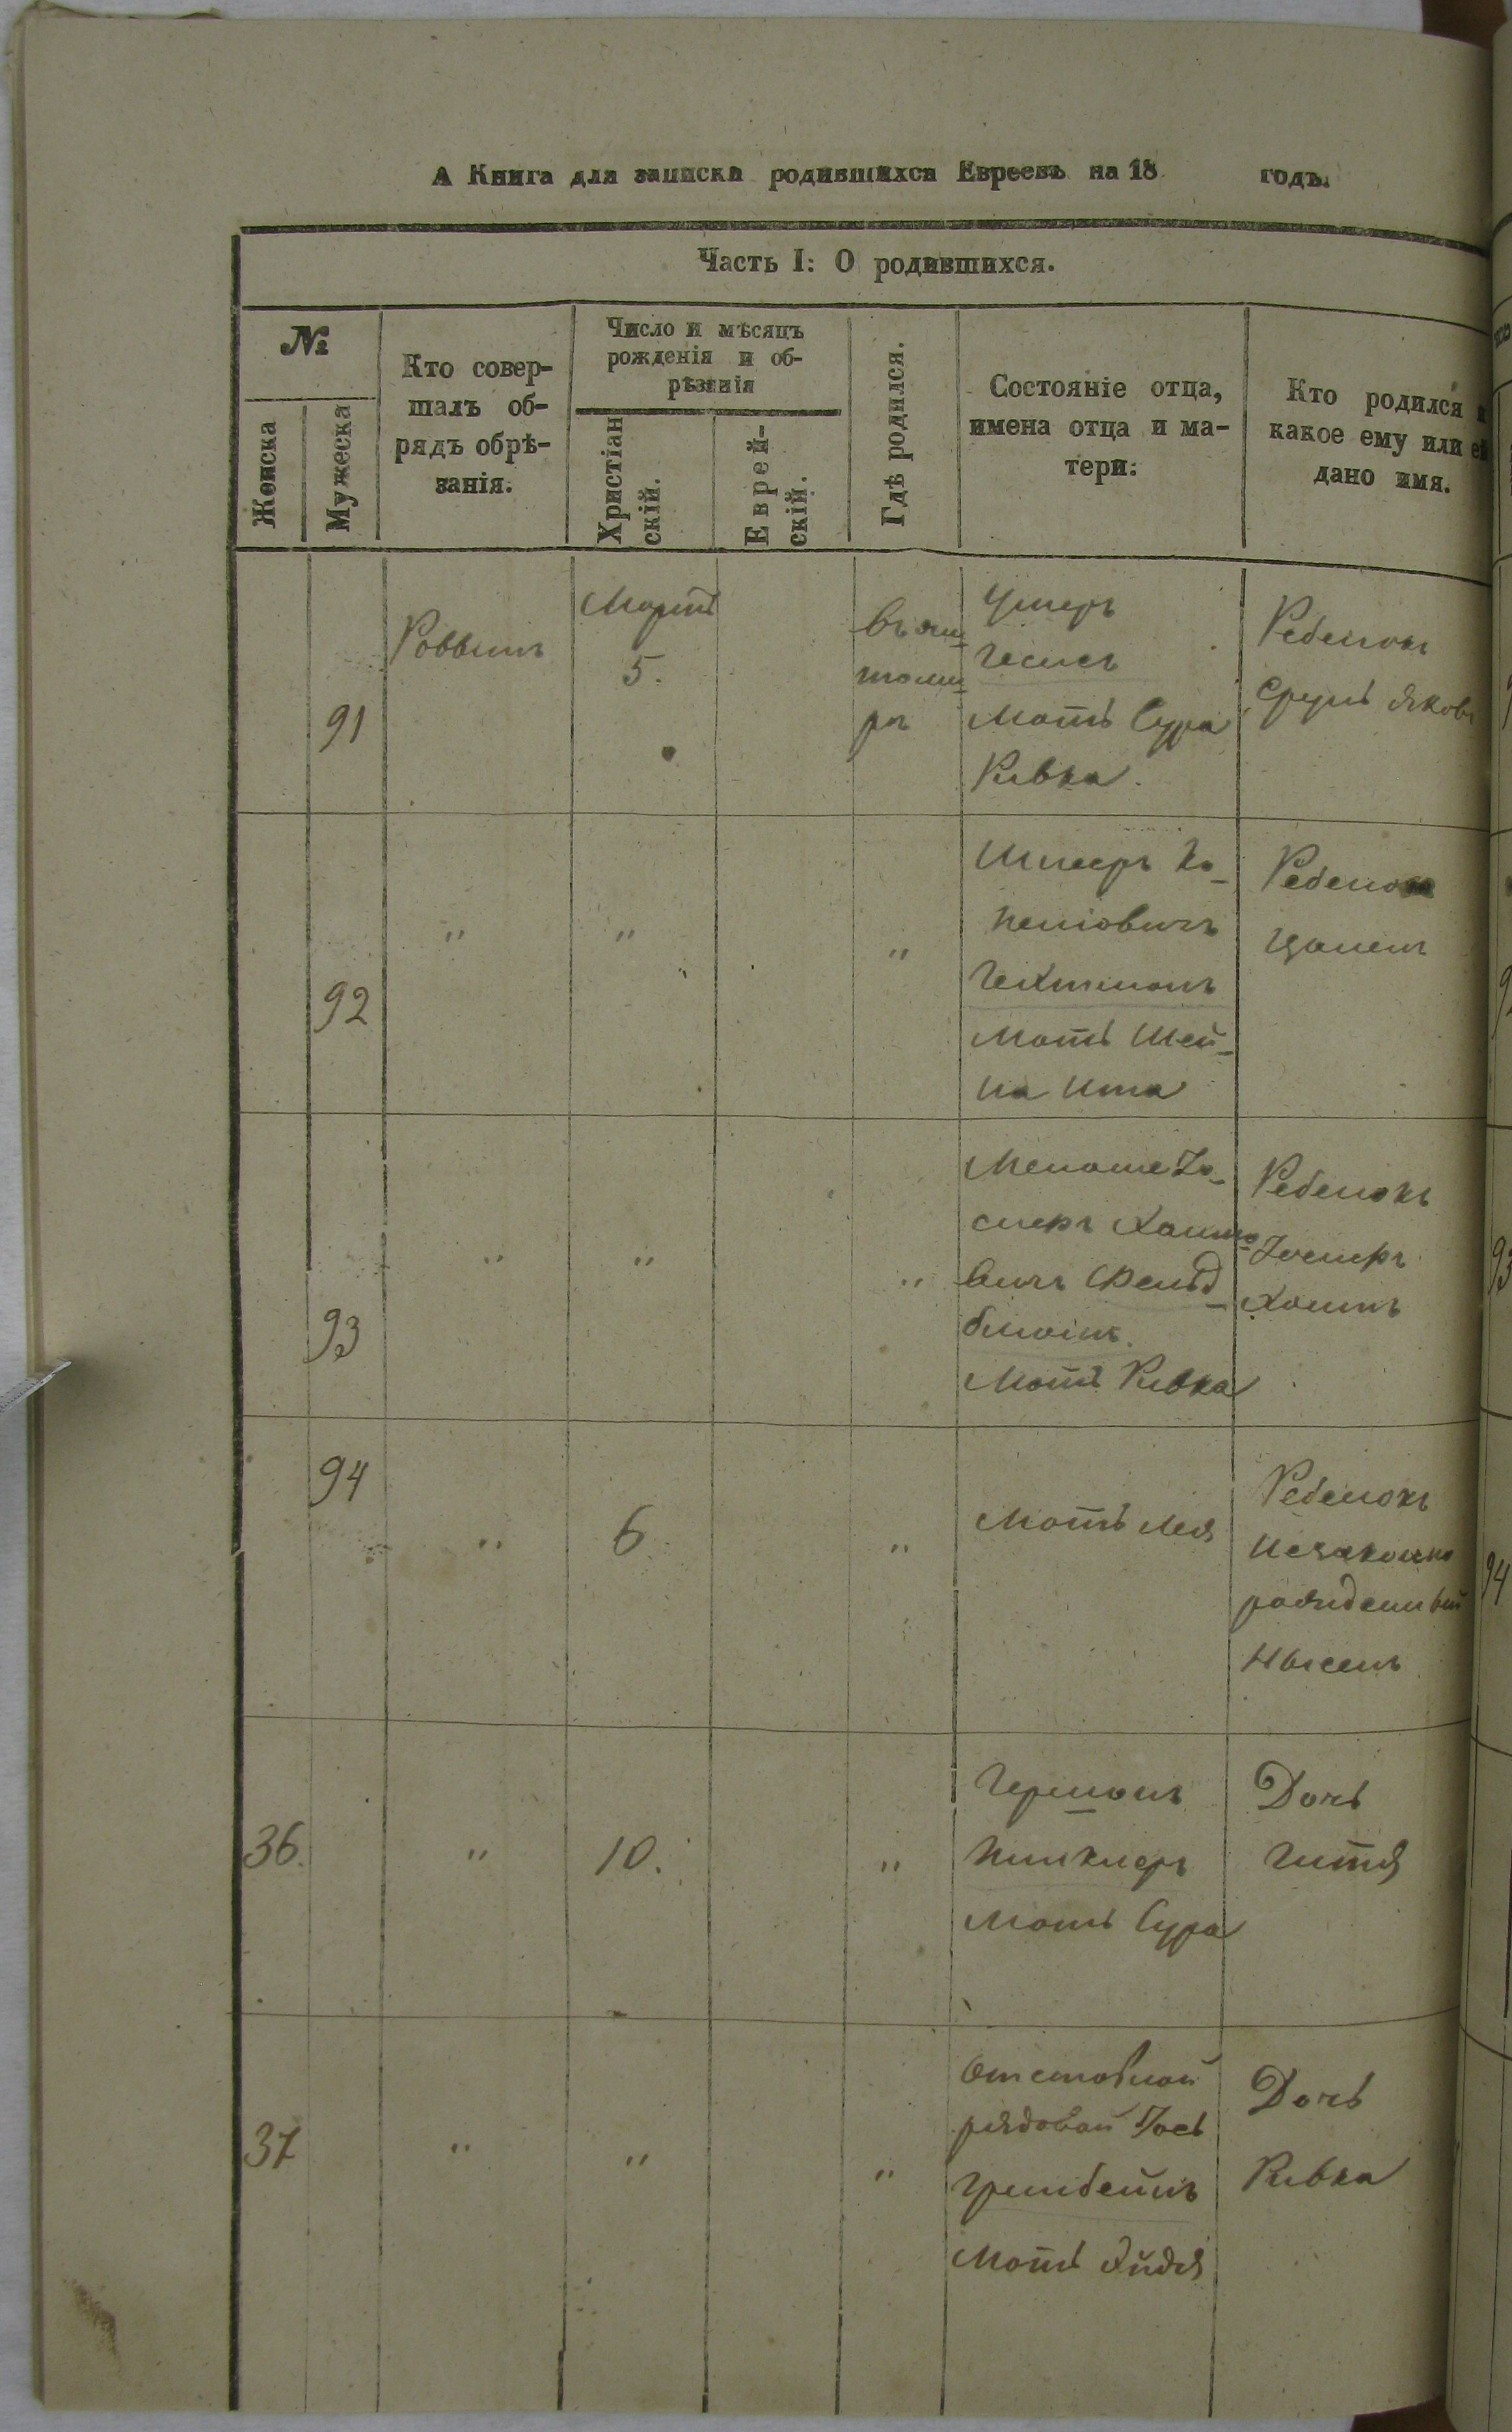 А Книга для записки родившихся Евреевъ на 18 годъ.
Часть I: О родившихся.
№
Женска
Мужеска
Кто совер-
шалъ об-
рядъ обрѣ-
занія.
Число и мѣсяцъ
рожденія и об-
рѣзанія
Христіан
скій.
Еврей-
скій.
Гдѣ родился.
Состояніе отца,
имена отца и ма-
тери:
Кто родился и
какое ему или ей
дано имя.
91
Раввинъ
Мартъ
5.
въ жи
томи
рѣ
Умеръ
Мать Сура
Ривка.
Ребенокъ
Сруль Яковъ
92
"
"
"
Шмеръ Ко
Гехтманъ
Мать Шей
на Ита
Ребенокъ
93
"
"
"
Менаше Іо
сифъ Хаимо
вичъ Фельд
Мать Ривка
Ребенокъ
Іосифъ
Хаимъ
94
"
6
"
Мать Лея
Ребенокъ
незаконно
рожденный
Нысенъ
36.
"
10.
"
Германъ
Пинклеръ
Мать Сура
Дочь
Гитя
37
"
"
"
Отставной
рядовой Іось
Гринбейнъ
Мать Хайдя
Дочь
Ривка
93
94